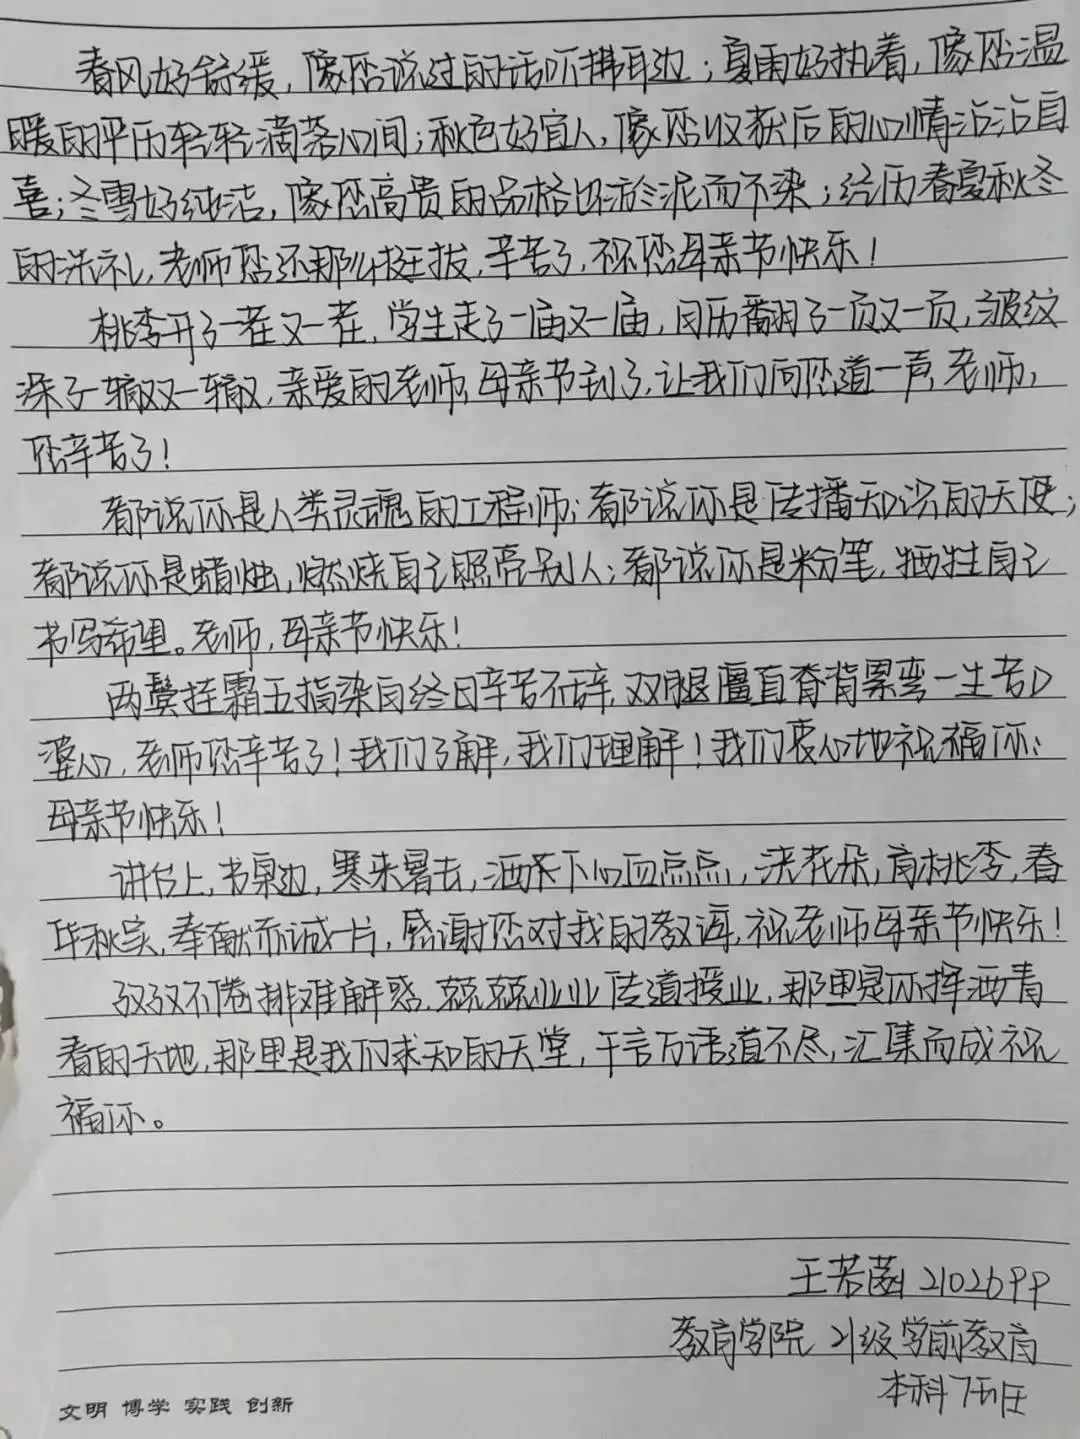 春风好舒缓，像您说过的话吹拂耳边；夏雨好执着，像您温
暖的平历轻轻滴落心间；秋色好宜人，像您收获后的心情沾沾自
喜；冬雪好纯洁，像您高贵的品格出淤泥而不染；经历春夏秋冬
的洗礼，老师您还那么挺拔，辛苦了，祝您母亲节快乐！
桃李开了一茬又一茬，学生走了一届又一届，日历翻了一页又一页，波纹
深了一辙又一辙，亲爱的老师，母亲节到了，让我们向您道一声，老师，
您辛苦了！
都说你是人类灵魂的工程师；都说你是传播知识的天使；
都说你是蜡烛，燃烧自己照亮别人；都说你是粉笔，牺牲自己
书写希望。老师，母亲节快乐！
两鬓挂霜五指染白终日辛苦不辞，双腿僵直脊背累弯一生苦口
婆心，老师您辛苦了！我们了解，我们理解！我们衷心地祝福你：
母亲节快乐！
讲台上，书桌边，寒来暑去，洒下心血点点，浇花朵，育桃李，春
华秋实，奉献赤诚一片，感谢您对我的教诲，祝老师母亲节快乐！
孜孜不倦排难解惑，兢兢业业传道授业，那里是你挥洒青
春的天地，那里是我们求知的天堂，千言万语道不尽，汇集而成祝
福你。
王若菡 2102699
教育学院 21级学前教育
本科7班
文明 博学 实践 创新